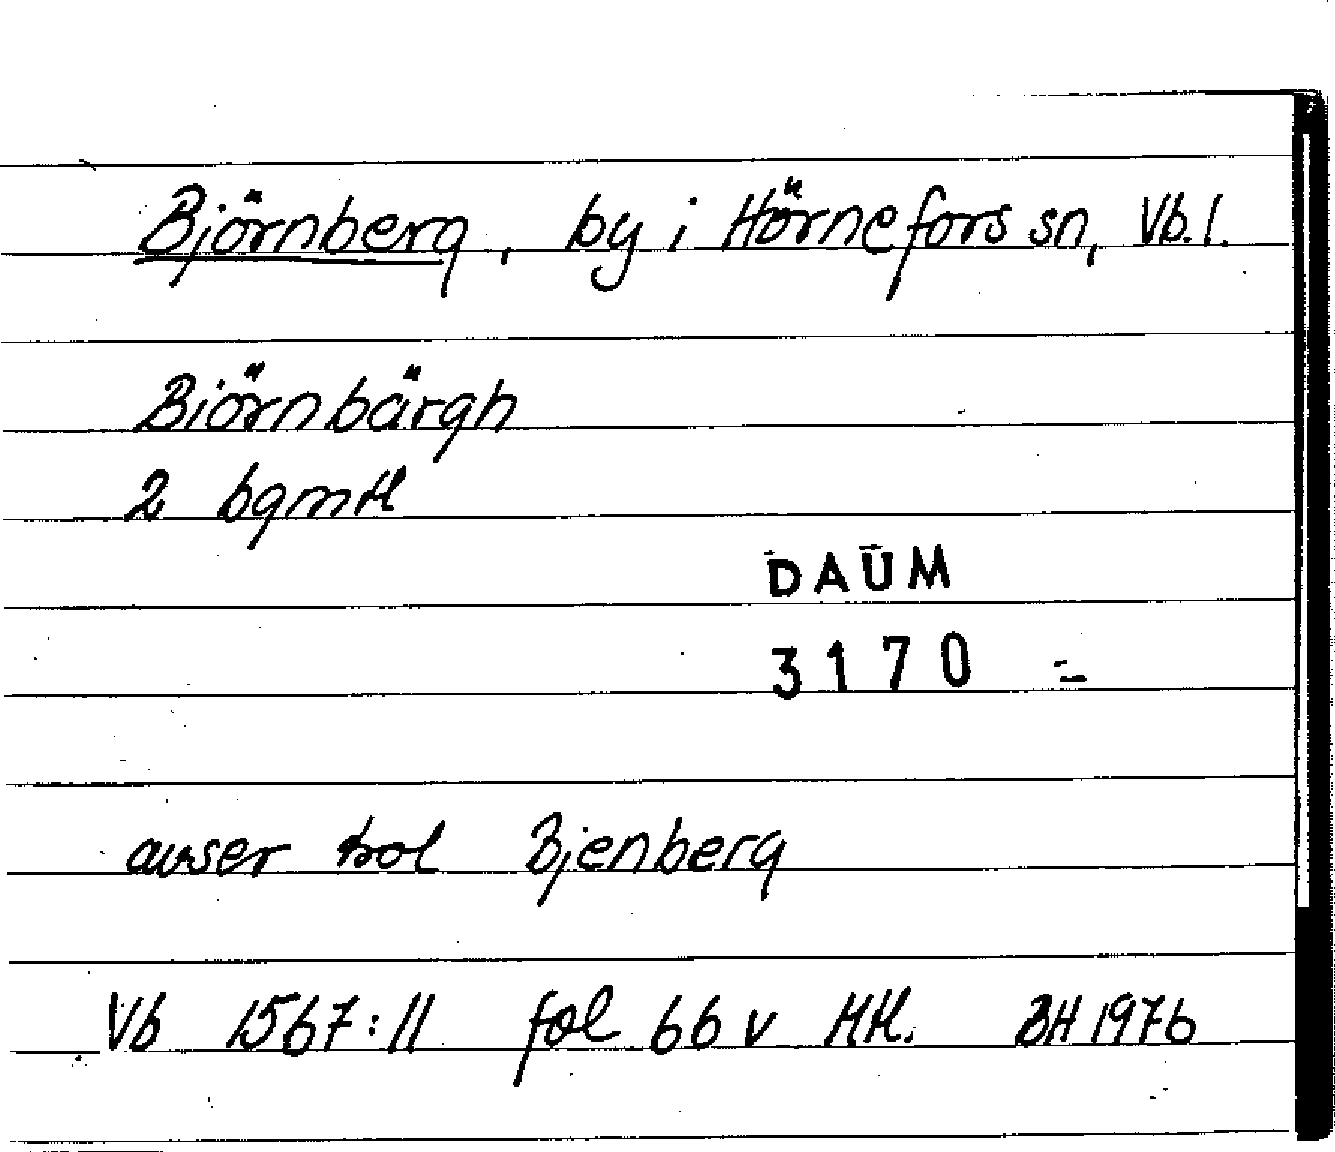 Björnberg, by i Hörnefors sn, Vb. l.
Biörnbärgh
2 bgmtl
DAUM
3170
avser trol Bjenberg
Vb 1567:11 fol 66 v HH. BH 1976